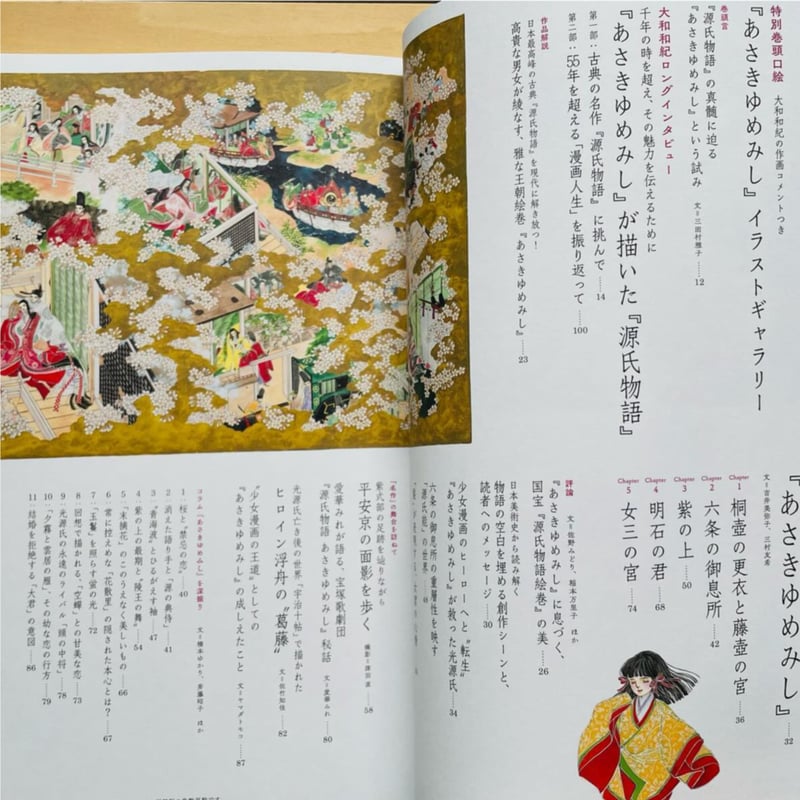 特別巻頭口絵 大和和紀の作画コメントつき
『あさきゆめみし』イラストギャラリー
巻頭言
『源氏物語』の真髄に迫る
『あさきゆめみし』という試み 文=三田村雅子……12
大和和紀ロングインタビュー
千年の時を超え、その魅力を伝えるために
『あさきゆめみし』が描いた『源氏物語』
第一部:古典の名作『源氏物語』に挑んで……14
第二部:55年を超える「漫画人生」を振り返って……100
作品解説
日本最高峰の古典『源氏物語』を現代に解き放つ!
高貴な男女が綾なす、雅な王朝絵巻『あさきゆめみし』……23
『あさきゆめみし』……32
文=吉井美弥子、三村友希
Chapter 1 桐壺の更衣と藤壺の宮……36
Chapter 2 六条の御息所……42
Chapter 3 紫の上……50
Chapter 4 明石の君……68
Chapter 5 女三の宮……74
評論 文=佐野みどり、稲本万里子 ほか
『あさきゆめみし』に息づく、
国宝『源氏物語絵巻』の美……26
日本美術史から読み解く
物語の空白を埋める創作シーンと、
読者へのメッセージ……30
少女漫画のヒーローへと"転生"
『あさきゆめみし』が救った光源氏……34
六条の御息所の重層性を映す
『源氏能』の世界
「名作」の舞台を訪ねて
紫式部の足跡を辿りながら
平安京の面影を歩く 撮影=蓮田真……58
愛華みれが語る、宝塚歌劇団
『源氏物語 あさきゆめみし』秘話 文=愛華みれ……80
光源氏亡き後の世界「宇治十帖」で描かれた
ヒロイン浮舟の"葛藤" 文=佐竹知佳……82
"少女漫画の王道"としての
『あさきゆめみし』の成しえたこと 文=ヤマダトモコ……87
コラム『あさきゆめみし』を深掘り 文=橋本ゆかり、斉藤昭子 ほか
1 "桜と禁忌の恋"……40
2 消えた語り手と「源の典侍」……41
3 "青海波"とひるがえす袖……47
4 紫の上の最期と"陵王の舞"……54
5 「末摘花」のこのうえなく美しいもの……66
6 常に控えめな「花散里」の隠された本心とは?……67
7 「玉鬘」を照らす蛍の光……72
8 回想で描かれる、「空蟬」との甘美な恋……73
9 光源氏の永遠のライバル「頭の中将」……78
10 「夕霧と雲居の雁」、その幼な恋の行方……79
11 結婚を拒絶する「大君」の意図……86